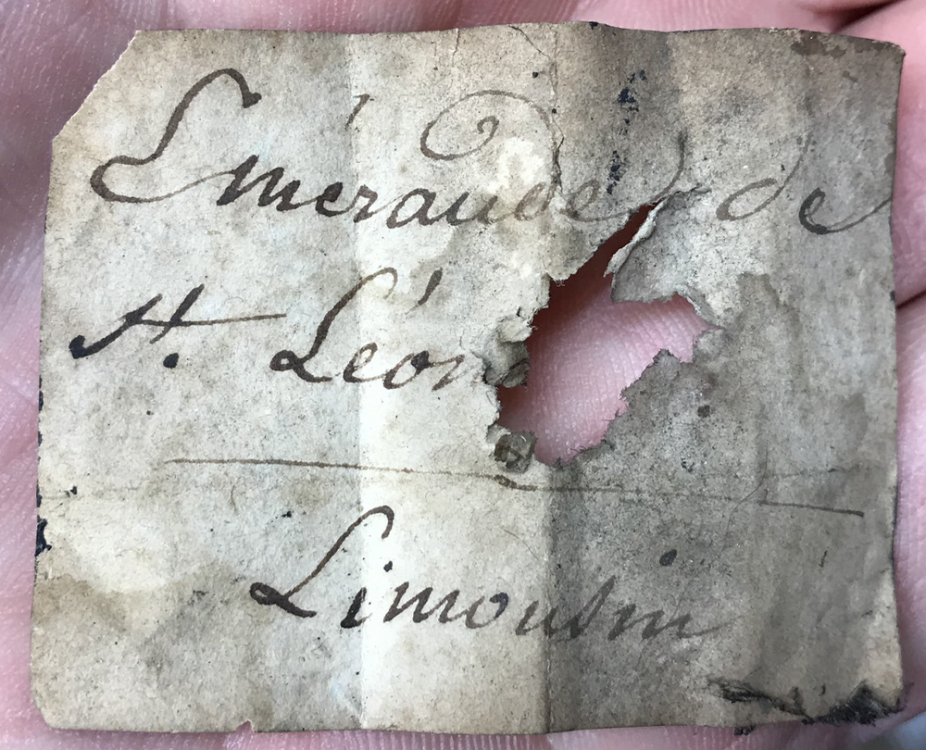 Eméraude de
St. Léon
Limousin